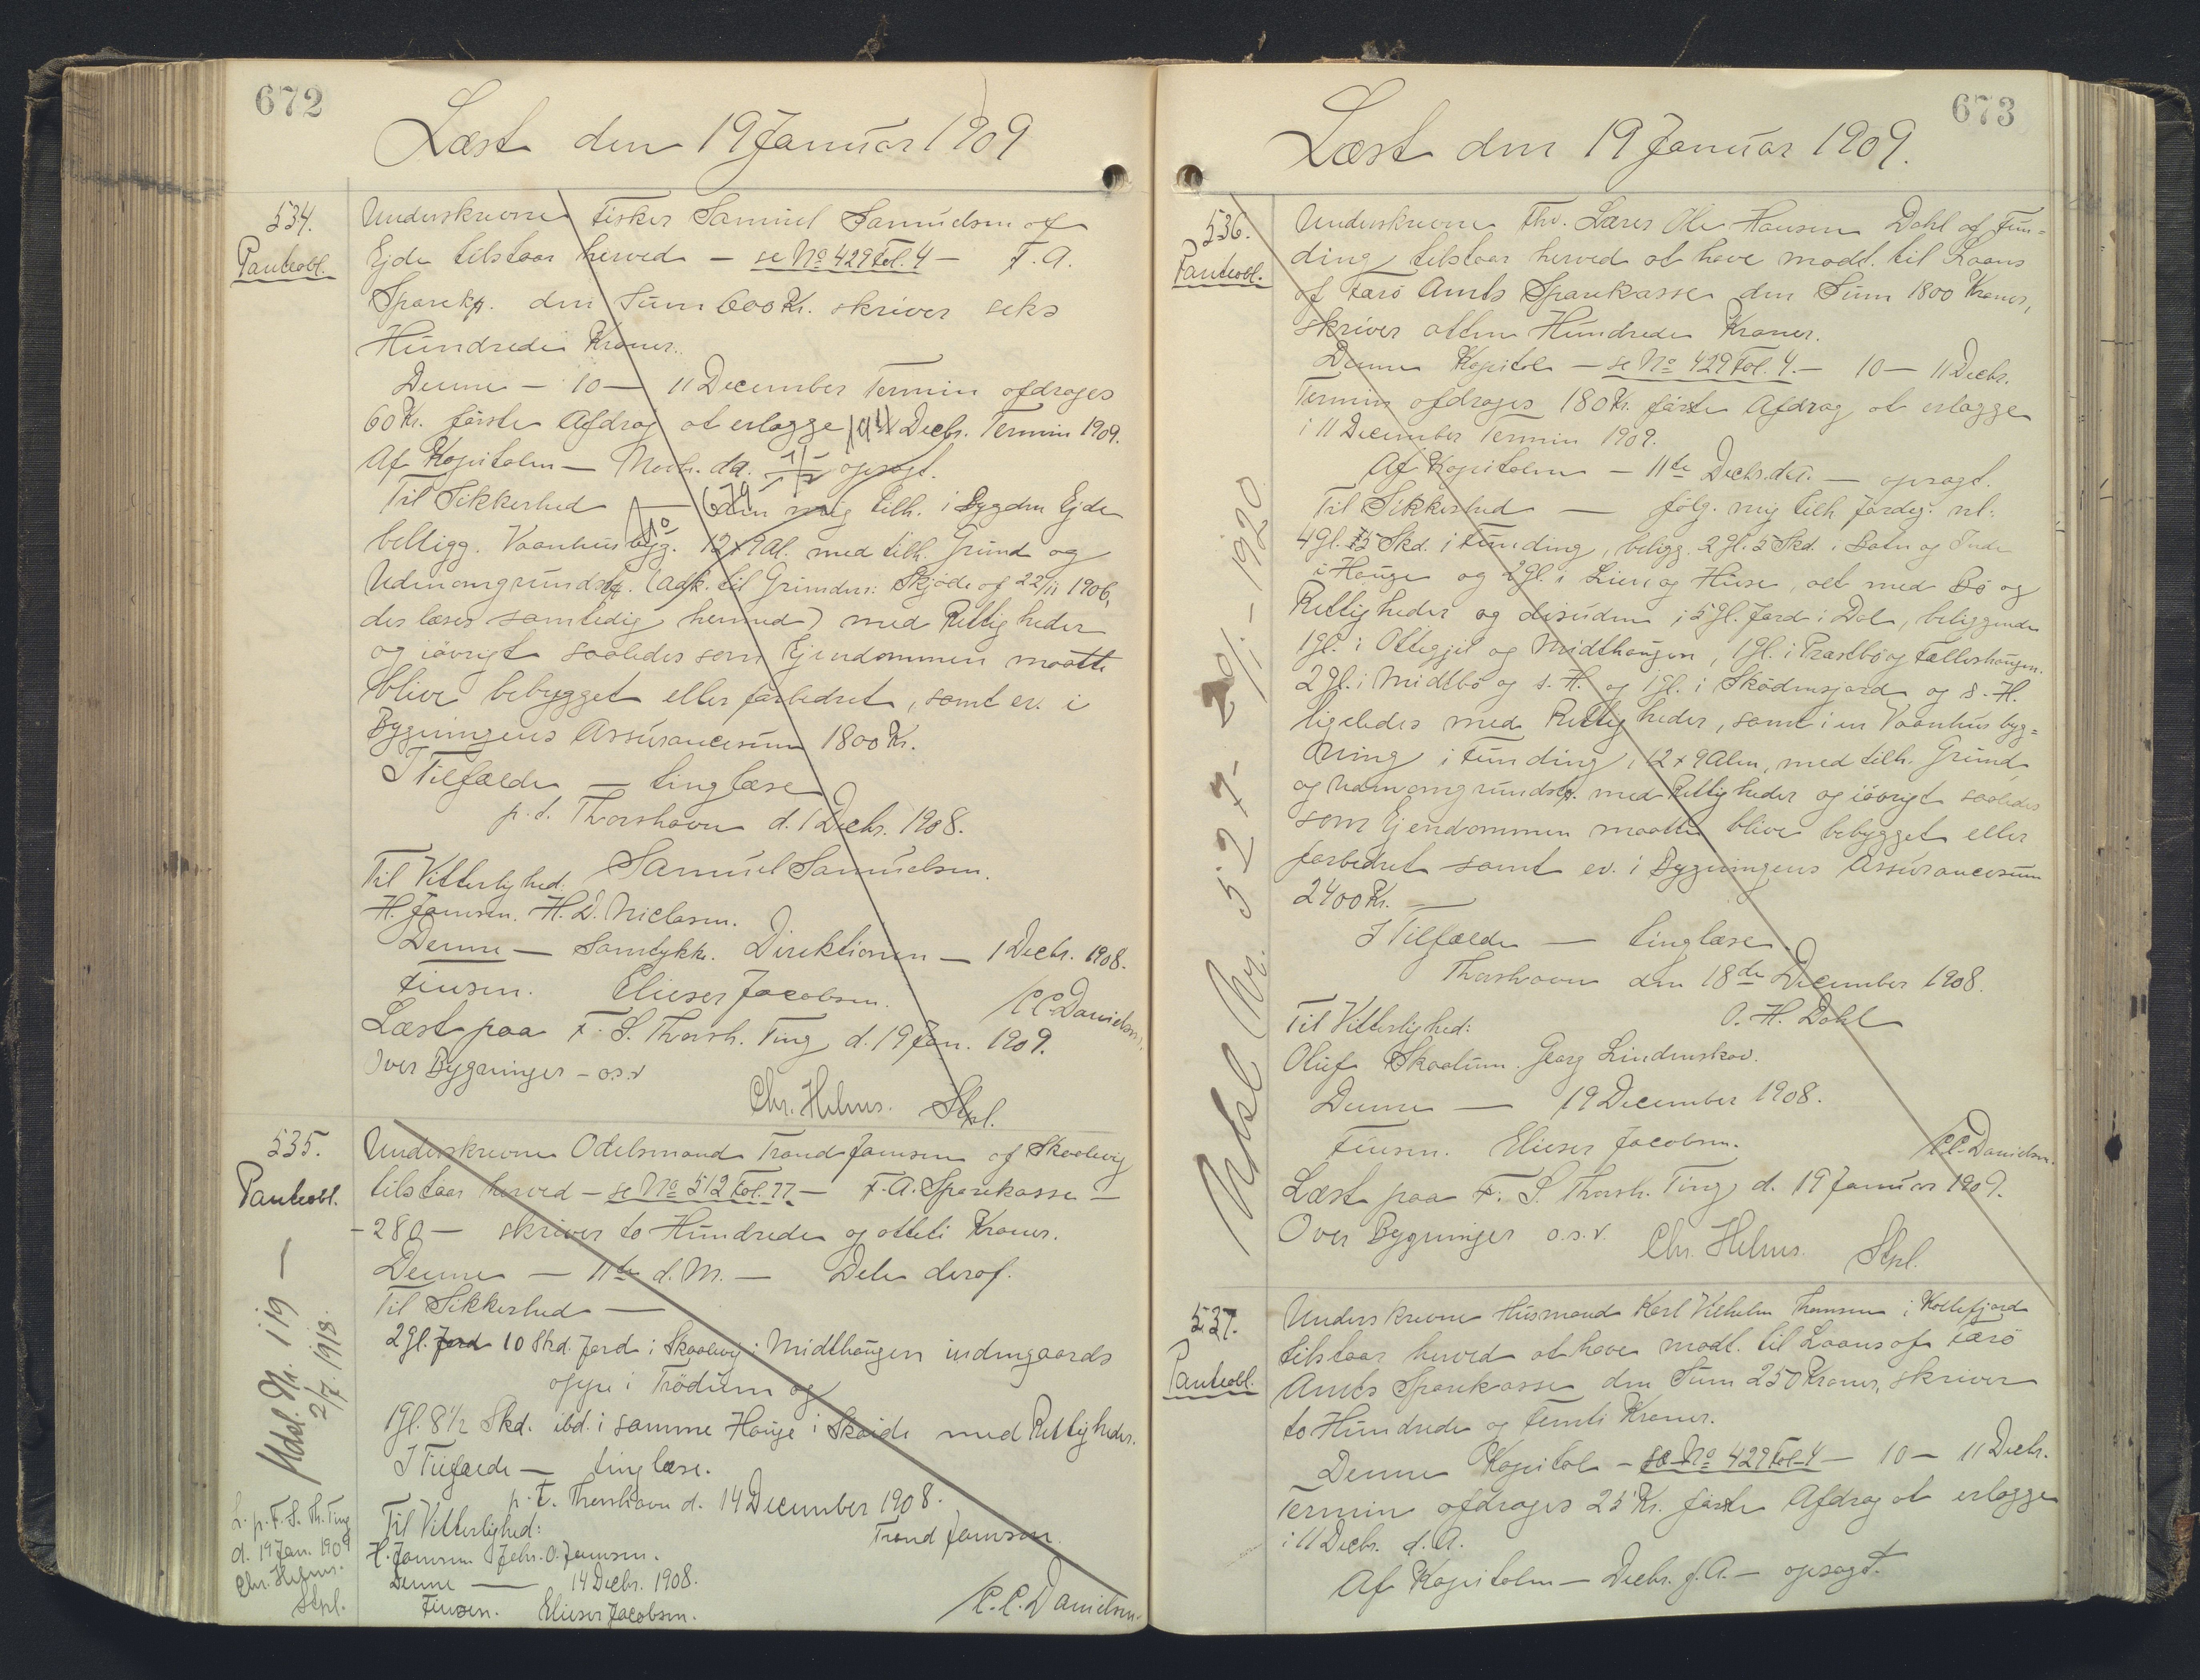 672
Læst den 19 Januar 1909
534.
Panteobl.
Underskrevne Fisker Samuel Samuelsen af
Ejde tilstaar herved - se No 429 Fol. 4 - F. A.
Sparek. den Sum 600 Kr. skriver seks
Hundrede Kroner.
Denne - 10 - 11 December Termin afdrages
60 Kr. første Afdrag at erlægge 11 Decbr. Termin 1909.
Af Kapitalen - opsagt.
Til Sikkerhed - mig tilh. i Bygden Ejde
beligg. Vaanhusbyg. 12 x 9 Al. med tilh. Grund og
Udenomgrundst. (adk. til Grunden: Skjøde af 22/11 1906,
der læses samtidig hermed) med Rettigheder
og iøvrigt saaledes som Ejendommen maatte
blive bebygget eller forbedret, samt ev. i
Bygningens Assurancesum 1800 Kr.
I Tilfælde - tinglæse
p. t. Thorshavn d. 1 Decbr. 1908.
Samuel Samuelsen.
Til Vitterlighed:
H. Jamsen. H. D. Niclasen.
Denne - Samtykke. Direktionen - 1 Decbr. 1908.
Finsen. Elieser Jacobsen. /C. C. Danielsen.
Læst paa F. S. Thorsh. Ting d. 19 Jan. 1909.
Over Bygninger - o.s.v
Chr. Helms. Stpl.
535.
Panteobl.
Underskrevne Odelsmand Trond Jamsen af Skaalevig
tilstaar herved - se No 512 Fol. 77 - F. A. Sparekasse -
- 280 - skriver to Hundrede og otteti Kroner.
Denne - 11te d. M. - Dele deraf.
Til Sikkerhed -
2 Gl. Jord 10 Skd. Jord i Skaalevig i Midthaugen indengaards
oppe i Trödum og
1 Gl. 8 1/2 Skd. ibd. i samme Hauge i med Rettigheder.
I Tilfælde - tinglæse.
p. t. Thorshavn d. 14 December 1908.
Til Vitterlighed: Trond Jamsen.
H. Jamsen. Johs. O. Jamsen.
Denne - 14 Decbr. 1908.
Finsen. Elieser Jacobsen. /C. C. Danielsen.
Udsl. Nr. i 19 -
2/7. 1918.
L. p. F. S. Th. Ting
d. 19 Jan. 1909
Chr. Helms.
Stpl.
673
Læst den 19 Januar 1909.
536.
Panteobl.
Underskrevne fhv. Lærer Ole Hansen Dahl af Fun=
ding tilstaar herved at have modt. til Laans
af Færø Amts Sparekasse den Sum 1800 Kroner,
skriver atten Hundrede Kroner.
Denne Kapital - se No 429 Fol. 4. - 10 - 11 Decbr.
Termin afdrages 180 Kr. første Afdrag at erlægge
i 11 December Termin 1909.
Af Kapitalen - 11te Decbr. - opsagt.
Til Sikkerhed - følg. mig tilh. Jordej. nl:
4 Gl. 15 Skd. i Funding, beligg. 2 Gl. 5 Skd. i Botn og Inde
i Hauge og 2 Gl. i Lien og Huse, alt med Bø og
Rettigheder og desuden i 5 Gl. Jord i Dal, beliggende
1 Gl. i Ottegjel og Midthaugen, 1 Gl. i Præstbø og Fælleshaugen.
2 Gl. i Midtbø og s. H. og 1 Gl. i Sködensjord og s. H.
ligeledes med Rettigheder, samt i en Vaanhusbyg=
ning i Funding, 12 x 9 Alen, med tilh. Grund
og Udenomgrundst. med Rettigheder og iøvrigt saaledes
som Ejendommen maatte blive bebygget eller
forbedret samt ev. i Bygningens Assurancesum
2400 Kr. -
I Tilfælde - tinglæse.
Thorshavn den 18de December 1908.
Til Vitterlighed: O. H. Dahl
Oluf Skaalum. Georg Lindenskov.
Denne - 19 December 1908.
Finsen. Elieser Jacobsen. /C. C. Danielsen.
Læst paa F. S. Thorsh. Ting d. 19 Januar 1909.
Over Bygninger o.s.v. Chr. Helms. Stpl.
Udsl. Nr. 527 - 20/1 - 1920
537.
Panteobl.
Underskrevne Husmand Karl Vilhelm Thomsen i Kollefjord
tilstaar herved at have modt. til Laans af Færø
Amts Sparekasse den Sum 250 Kroner, skriver
to Hundrede og femti Kroner.
Denne Kapital - se No 429 Fol. 4 - 10 - 11 Decbr.
Termin afdrages 25 Kr. første Afdrag at erlægge
i 11 Decbr. d. A.
Af Kapitalen - Decbr. d. A. - opsagt.